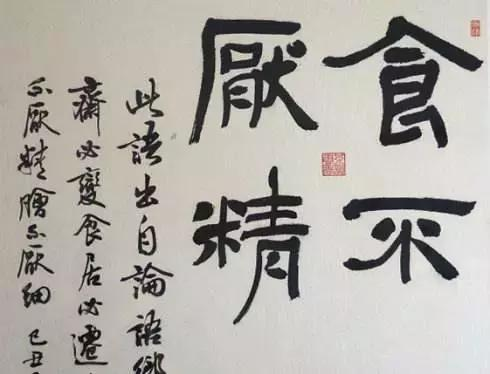 食不
厭精
此語出自論語鄉
齋必變食居必遷
不厭精膾不厭細 己丑